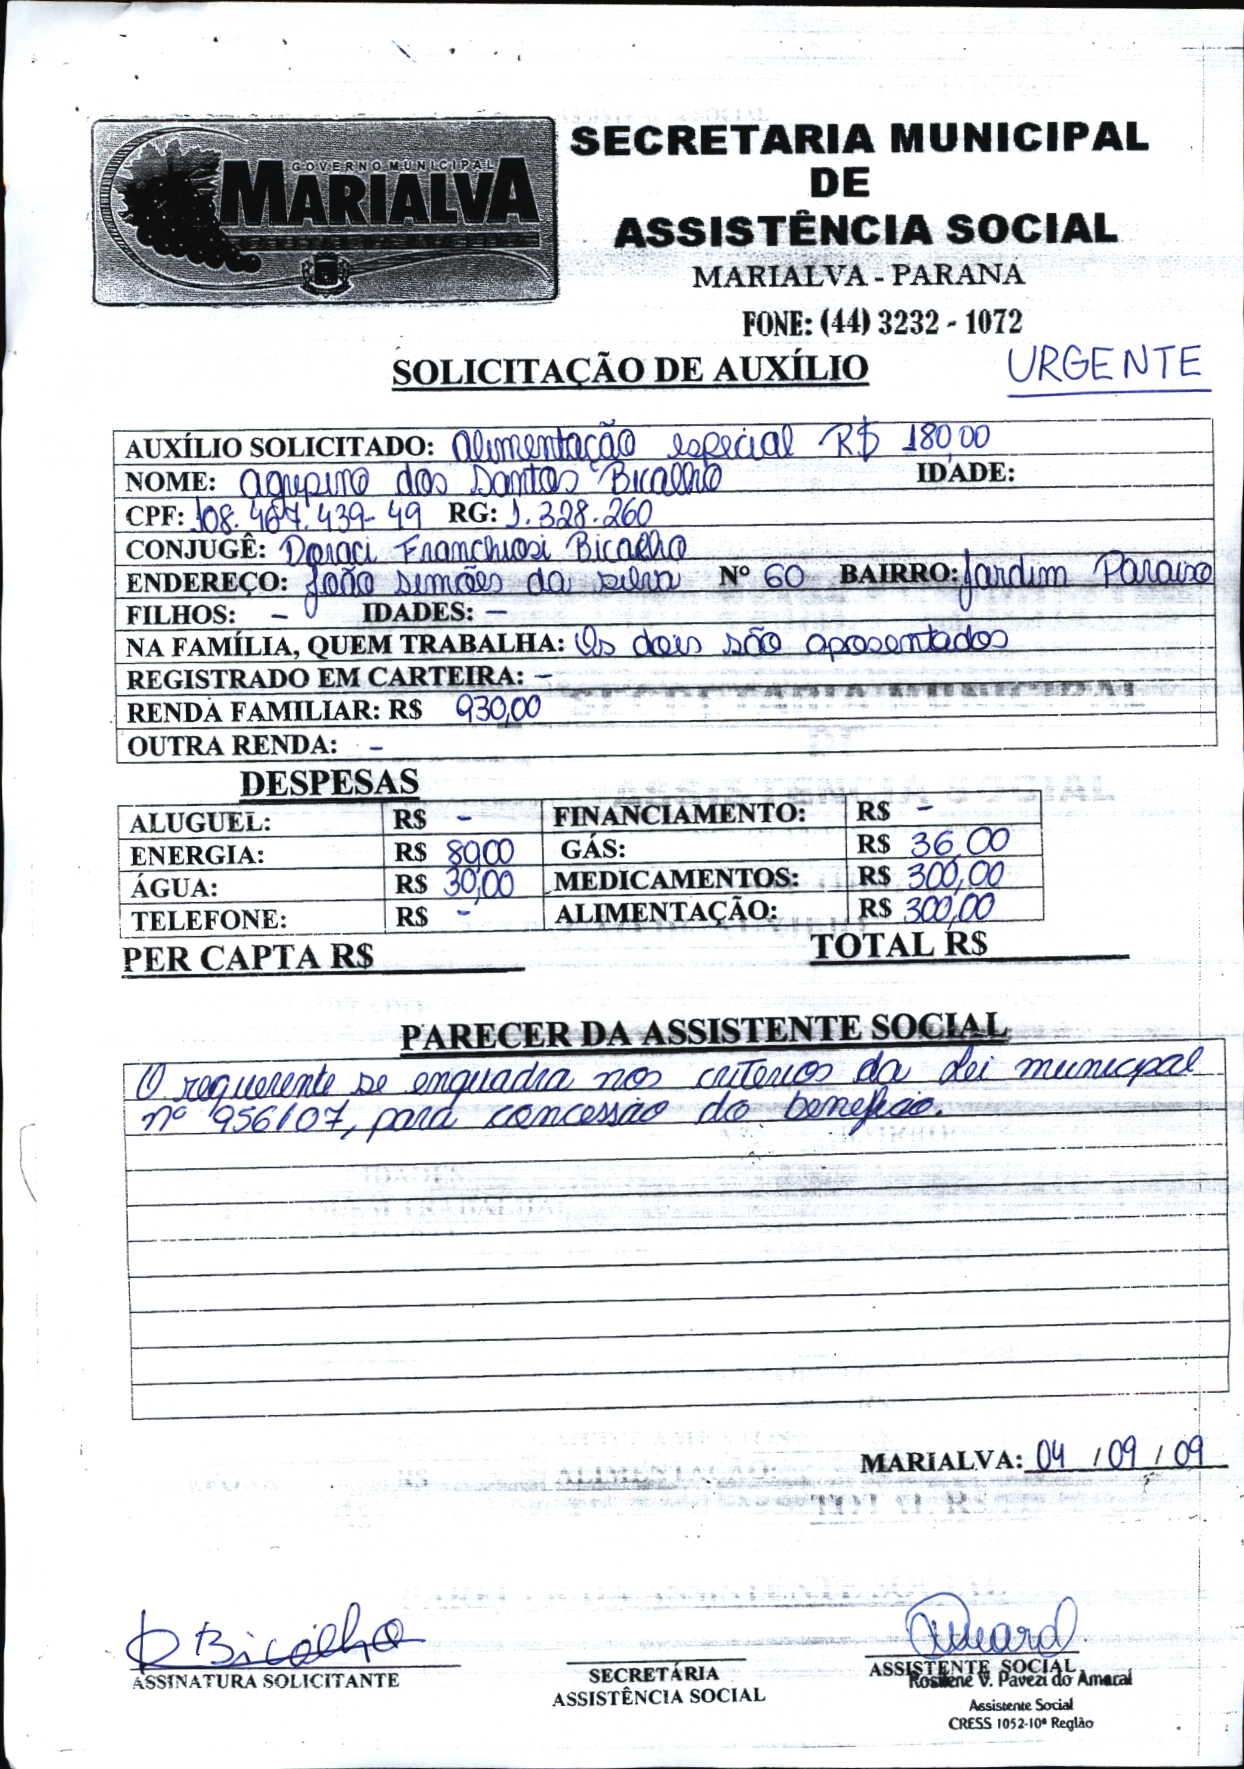 GOVERNO MUNICIPAL
MARIALVA
SECRETARIA MUNICIPAL
DE
ASSISTÊNCIA SOCIAL
MARIALVA - PARANÁ
FONE: (44) 3232 - 1072
SOLICITAÇÃO DE AUXÍLIO
URGENTE
AUXÍLIO SOLICITADO: Alimentação especial R$ 180,00
NOME: Agripino dos Santos Bicalho IDADE:
CPF: 108.467.439-49 RG: 1.328.260
CONJUGÊ: Doraci Franchiosi Bicalho
ENDEREÇO: João Simões da Silva Nº 60 BAIRRO: Jardim Paraiso
FILHOS: - IDADES: -
NA FAMÍLIA, QUEM TRABALHA: Os dois são aposentados
REGISTRADO EM CARTEIRA: -
RENDA FAMILIAR: R$ 930,00
OUTRA RENDA: -
DESPESAS
ALUGUEL: R$ - FINANCIAMENTO: R$ -
ENERGIA: R$ 80,00 GÁS: R$ 36,00
ÁGUA: R$ 30,00 MEDICAMENTOS: R$ 300,00
TELEFONE: R$ - ALIMENTAÇÃO: R$ 300,00
PER CAPTA R$ TOTAL R$
PARECER DA ASSISTENTE SOCIAL
O requerente se enquadra nos criterios da Lei municipal
nº 956/07, para concessão do beneficio.
MARIALVA: 04 / 09 / 09
Bicalho
ASSINATURA SOLICITANTE
SECRETÁRIA
ASSISTÊNCIA SOCIAL
Amaral
ASSISTENTE SOCIAL
Rosilene V. Pavezi do Amaral
Assistente Social
CRESS 1052-10ª Região